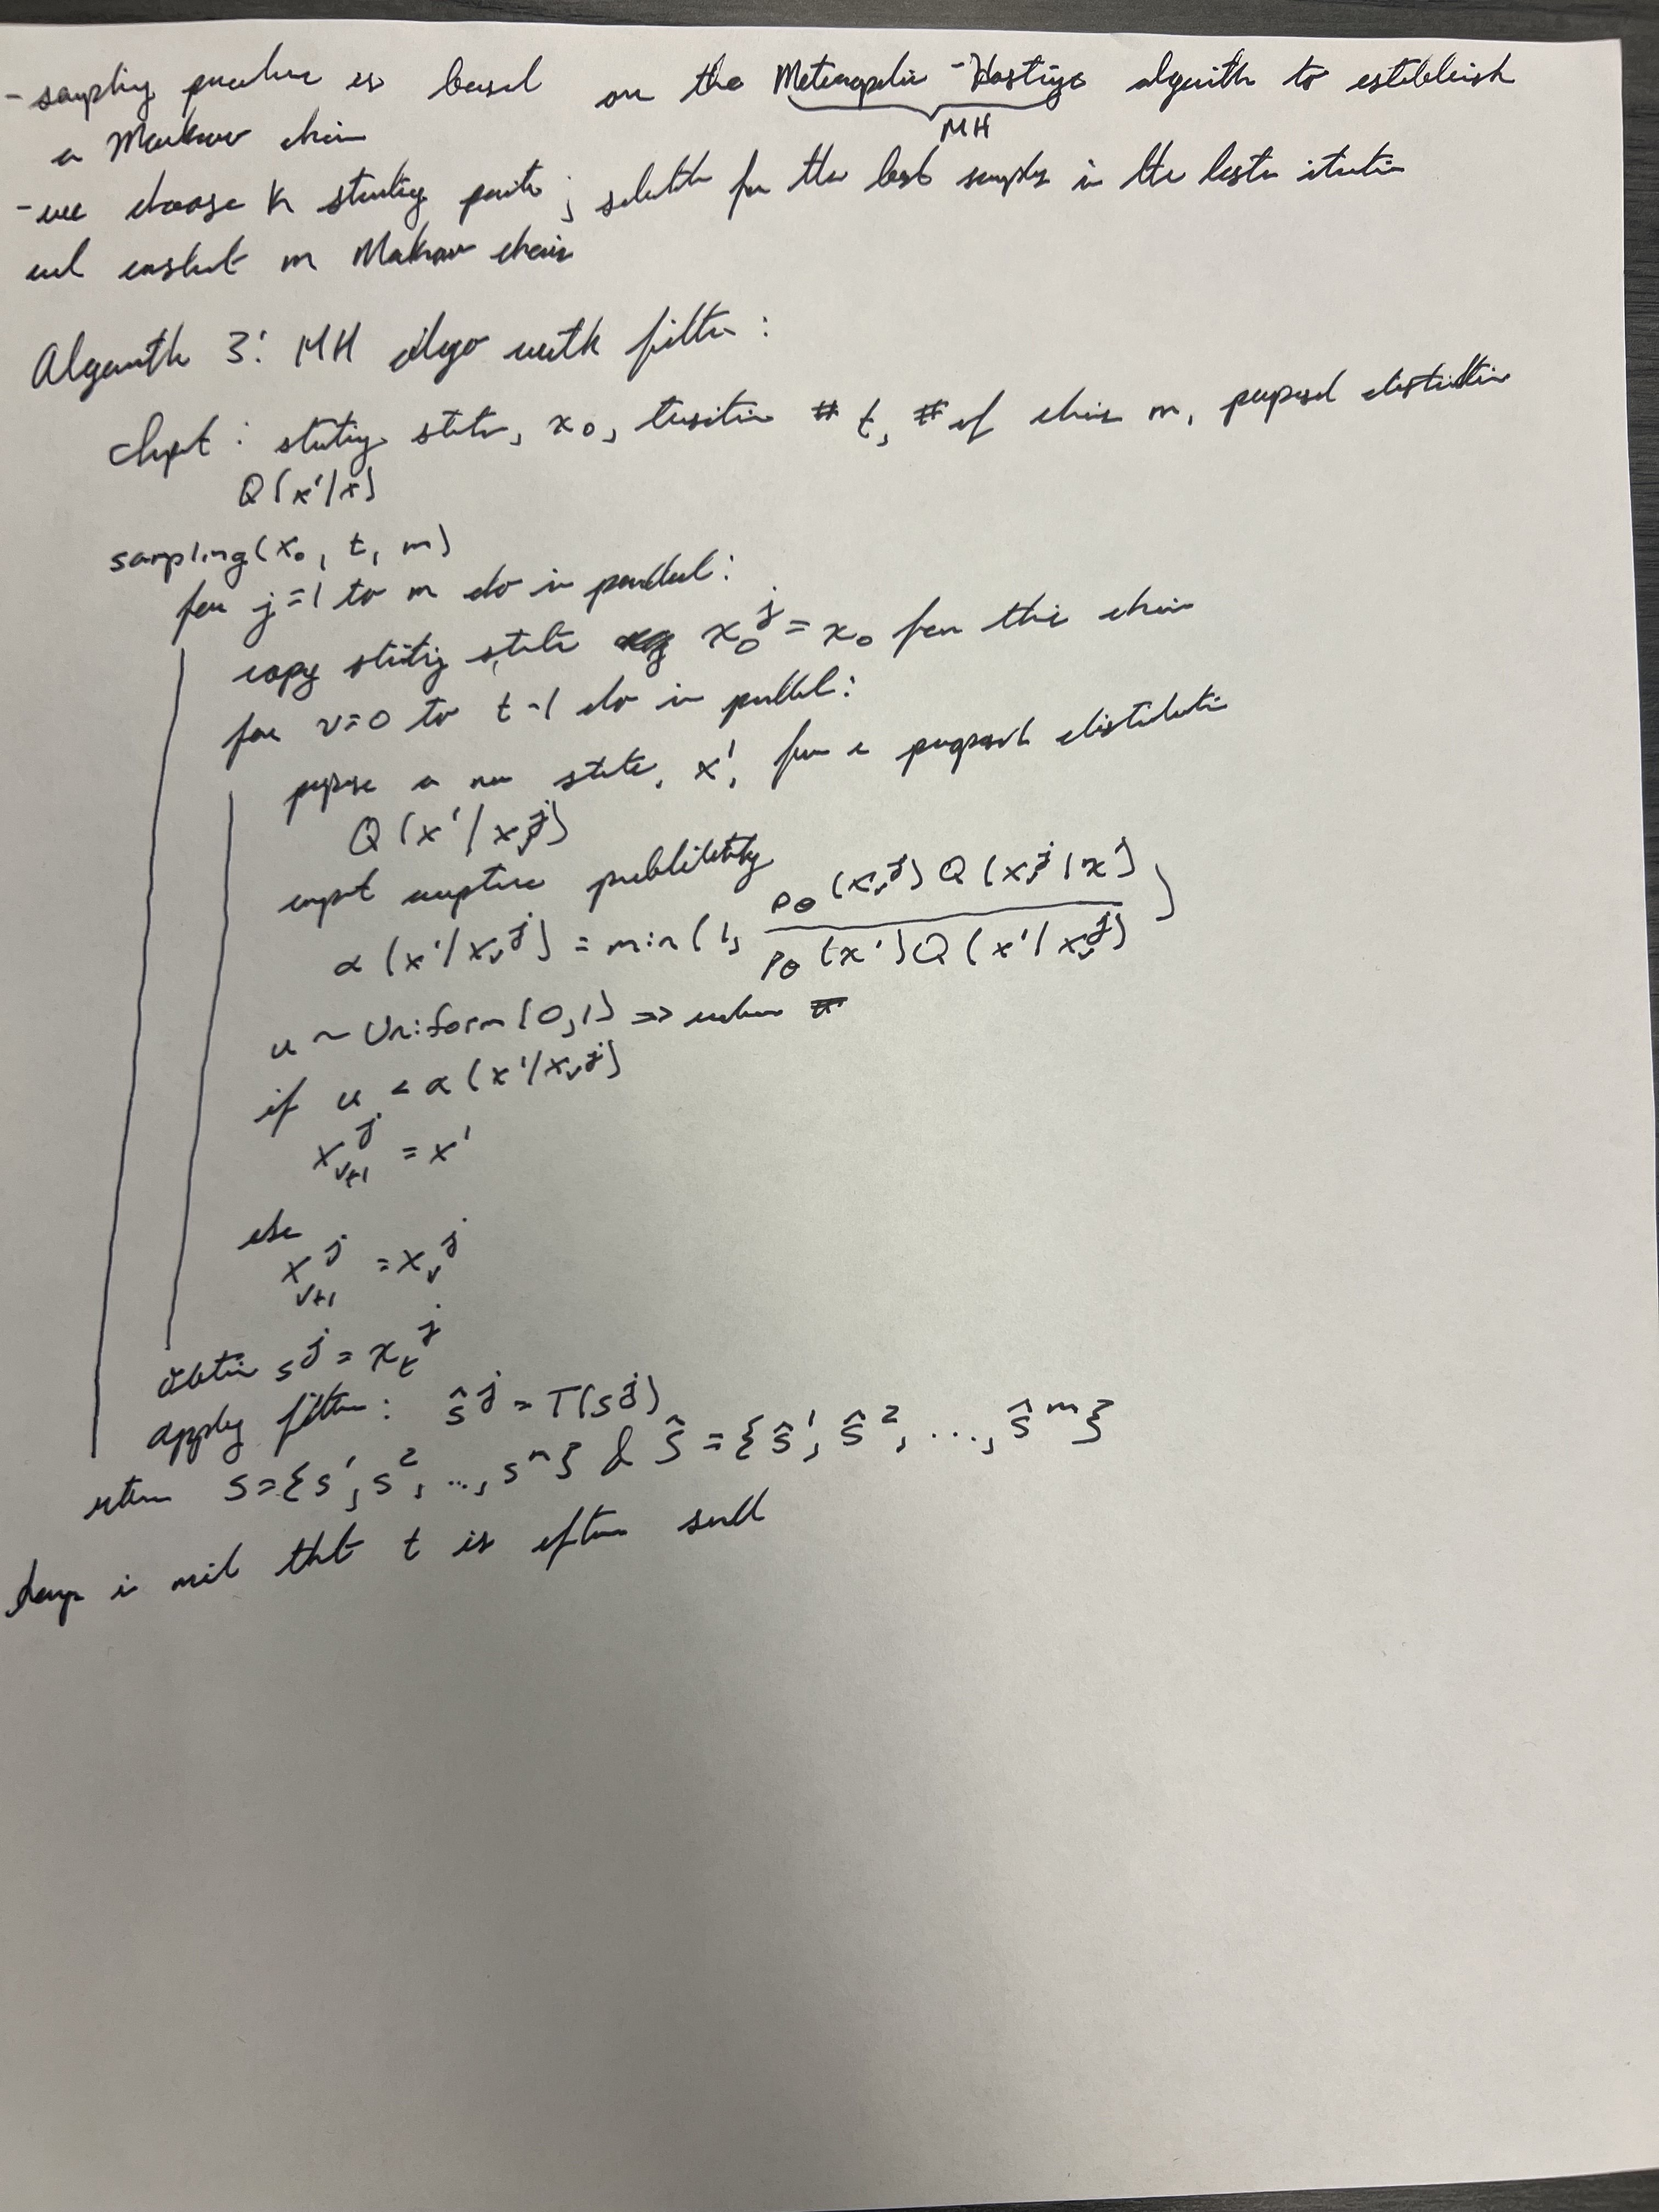 - sampling procedure is based on the Metropolis - Hastings algorithm to establish
MH
a Markov chain
- we choose k starting points; selected from the best samples in the last iteration
and construct m Markov chains
Algorithm 3: MH algo with filter:
Input: starting state, x₀, transition # t, # of chains m, proposal distribution
Q(x'|x)
sampling(x₀, t, m)
for j=1 to m do in parallel:
copy starting state x₀ʲ = x₀ for this chain
for v=0 to t-1 do in parallel:
propose a new state, x', from a proposal distribution
Q(x'|xᵥʲ)
compute acceptance probability
α(x'|xᵥʲ) = min(1, pθ(xᵥʲ)Q(xᵥʲ|x') / pθ(x')Q(x'|xᵥʲ))
u ~ Uniform(0,1) => random #
if u < α(x'|xᵥʲ)
xᵥ₊₁ʲ = x'
else
xᵥ₊₁ʲ = xᵥʲ
obtain sʲ = xₜʲ
apply filter: ŝʲ = T(sʲ)
return S={s¹, s², ..., sᵐ} & Ŝ={ŝ¹, ŝ², ..., ŝᵐ}
keep in mind that t is often small